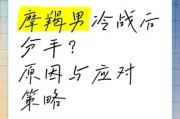 摩羯男冷战后
分手？
原因与应对
策略